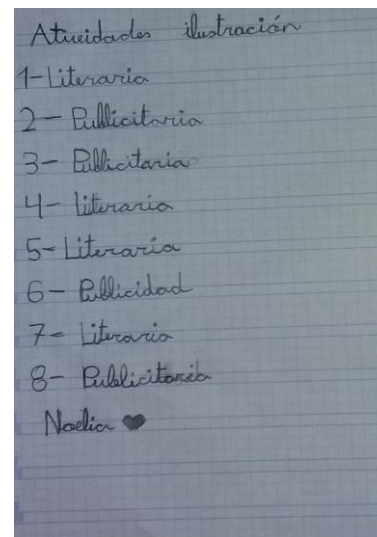 Atividades ilustración
1-Literaria
2- Publicitaria
3- Publicitaria
4- literaria
5- Literaria
6- Publicidad
7- Literaria
8- Publicitaria
Noelia ♥